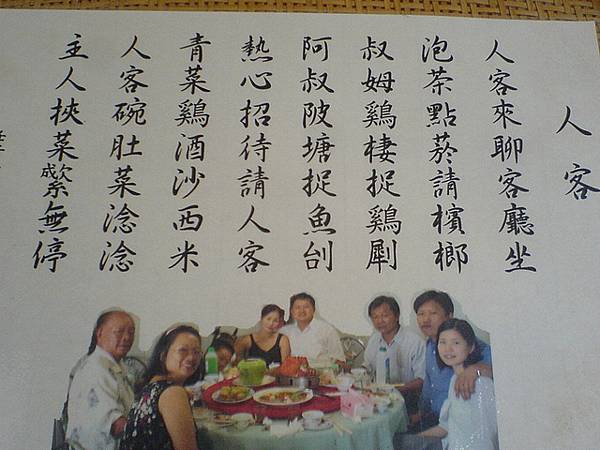 人客
人客來聊客廳坐
泡茶點菸請檳榔
叔姆鷄棲捉鷄劅
阿叔陂塘捉魚刣
熱心招待請人客
青菜鷄酒沙西米
人客碗肚菜淰淰
主人挾菜無停